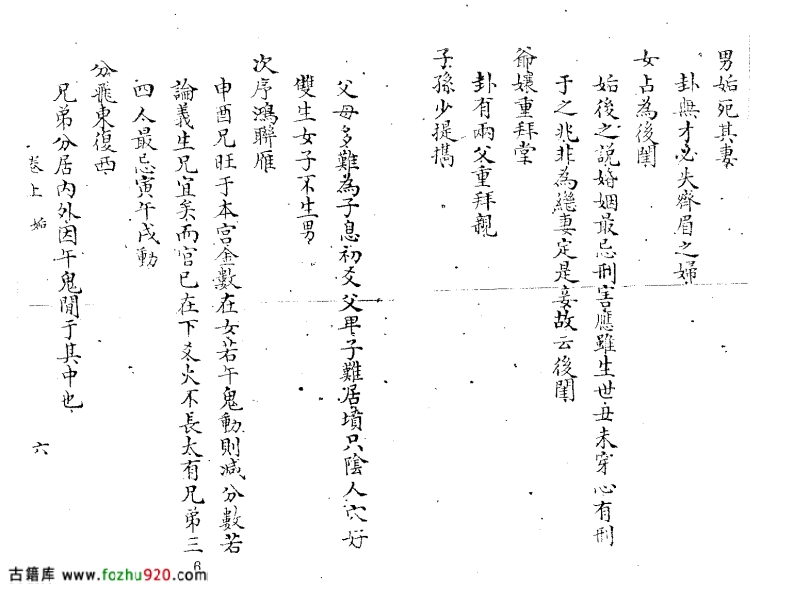 男姤死其妻
卦無才必失齊眉之婦
女占為後閨
姤後之說婚姻最忌刑害應雖生世丑未穿心有刑
于之兆非為繼妻定是妾故云後閨
爺孃重拜堂
卦有兩父重拜親
子孫少提攜
父母多難為子息初爻父甲子難居墳只陰人穴好
雙生女子不生男
次序鴻聯雁
申酉兄旺于本宮金數在女若午鬼動則减分數若
論義生兄宜矣而官已在下爻火不長大有兄弟三
四人最忌寅午戌動
分飛東復西
兄弟分居內外因午鬼間于其中也
卷上 姤
六
6
古籍库 www.fozhu920.com